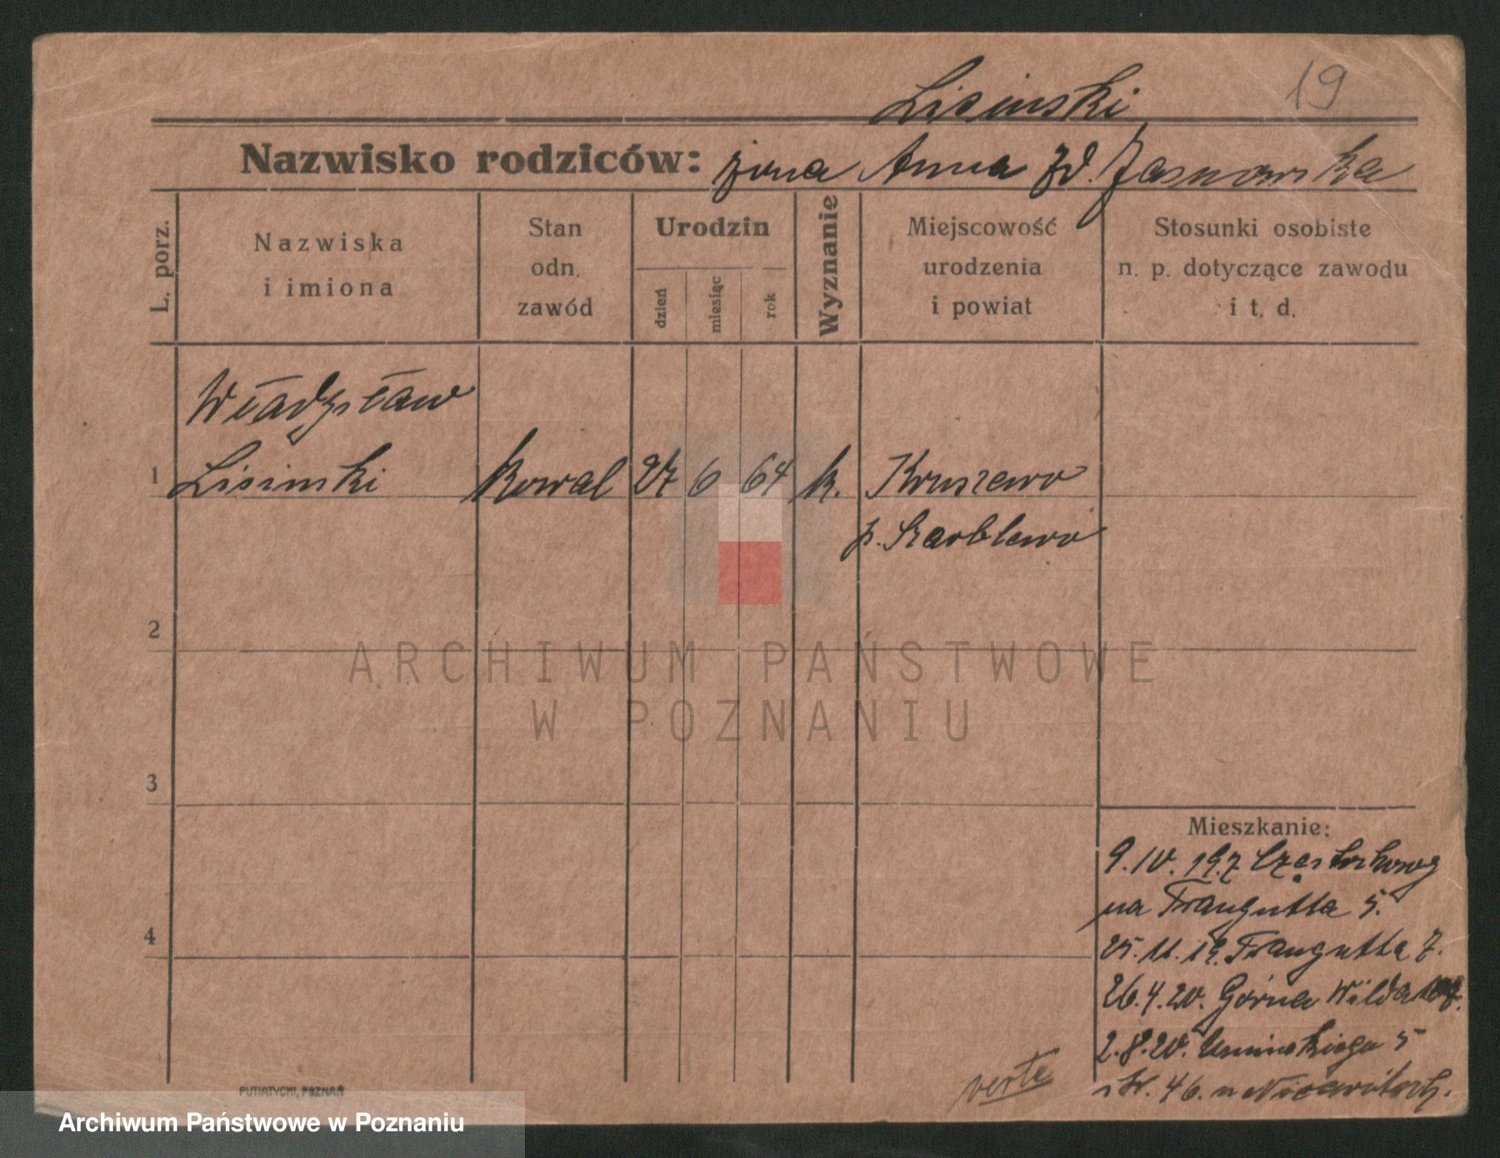 19
Lisinski
Nazwisko rodziców: żona Anna zd. Jasnowska
L. porz.
Nazwiska i imiona
Stan odn. zawód
Urodzin
dzień
miesiąc
rok
Wyznanie
Miejscowość urodzenia i powiat
Stosunki osobiste n. p. dotyczące zawodu i t. d.
Władysław
1 Lisinski kowal 27 6 64 k. Kruszewo
p.
2
ARCHIWUM PAŃSTWOWE
W POZNANIU
3
Mieszkanie:
9. IV. 19. z
na Traugutta 5.
4
25. 11. 19. Traugutta 7.
26. 4. 20. Górna Wilda
2. 8. 20. Umińskiego 5
46.
verte
PUTIATYCKI, POZNAŃ
Archiwum Państwowe w Poznaniu